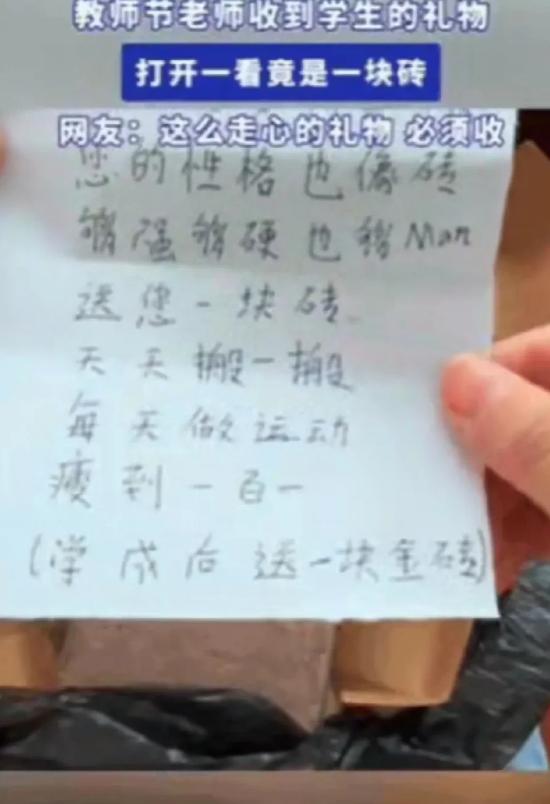 教师节老师收到学生的礼物
打开一看竟是一块砖
网友：这么走心的礼物 必须收
您的性格也像砖
够强够硬也够Man
送您一块砖
天天搬一搬
每天做运动
瘦到一百一
(学成后送一块金砖)